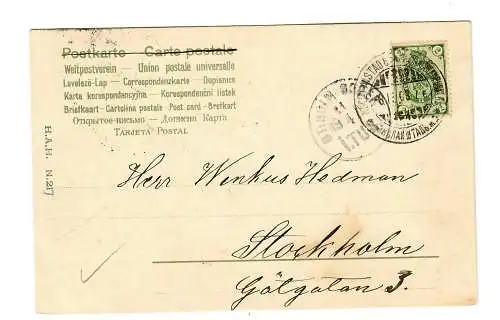 Postkarte — Carte postale
Weltpostverein — Union postale universelle
Levelező-Lap — Correspondenzkarte — Dopisnice
Karta korespondencyjna — Korespondenční listek
Briefkaart — Cartolina postale — Post card — Brefkort
Открытое письмо — Дописна Карта
Tarjeta Postal
H.A.H. N.217
Herr Wenhus Hedman
Stockholm
Götgatan 3.